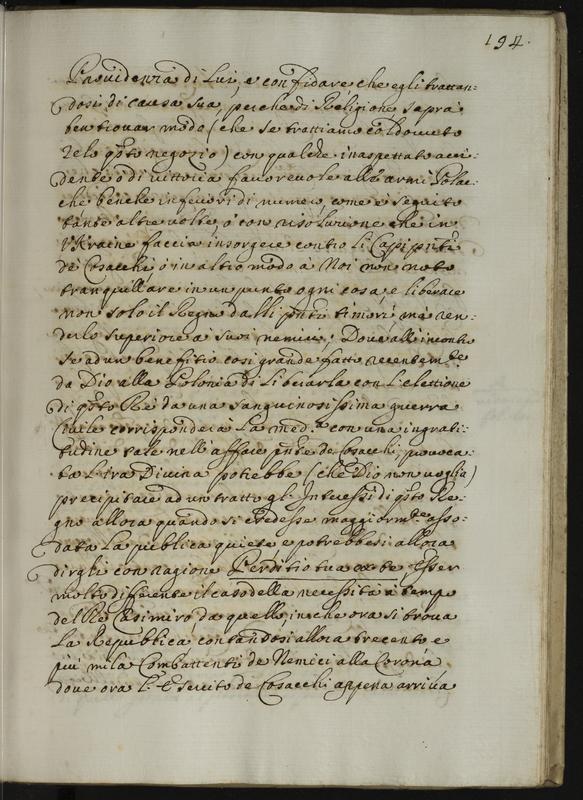 194.
Providenza di Lui, e confidare, che egli trattan:
dosi di causa sua, perche di Religione saprà
ben trouar modo (che se trattiamo col douuto
Zelo q.sto negozio) con qualche inaspettato acci:
dente ò di uittoria fauorevole all' armi Polac:
che benche inferiori di numero, come è seguito
tante altre uolte, ò con risoluzione che in
Vkraine faccia insorgere contro li Capi pnti
de Cosacchi ò in altro modo à Noi non noto
tranquillare in un punto ogni cosa, e liberare
non solo il Regno dalli pnti timori, mà ren:
derlo superiore à suoi nemici; Doue all' incontro
se ad un benefitio così grande fatto recentem.te
da Dio alla Polonia di liberarla con l'elettione
di q.sto Rè da una sanguinosissima guerra
Ciuile corrispondera la med.a con una ingrati:
tudine tale nell' affare pnte de Cosacchi, prouoca:
ta l'Ira Diuina potrebbe (che Dio non uoglia)
precipitare ad un tratto gl' Interessi di q.sto Re:
gno allora quando si credesse maggiorm.te asso:
data la publica quiete e potrebbesi allora
dirgli con ragione Perditio tua ex te Esser
molto differente il caso della necessità à tempo
del Rè Casimiro da quello in che ora si troua
La Republica contandosi allora trecento e
più mila Combattenti de Nemici alla Corona
doue ora l' Esercito de Cosacchi appena arriua